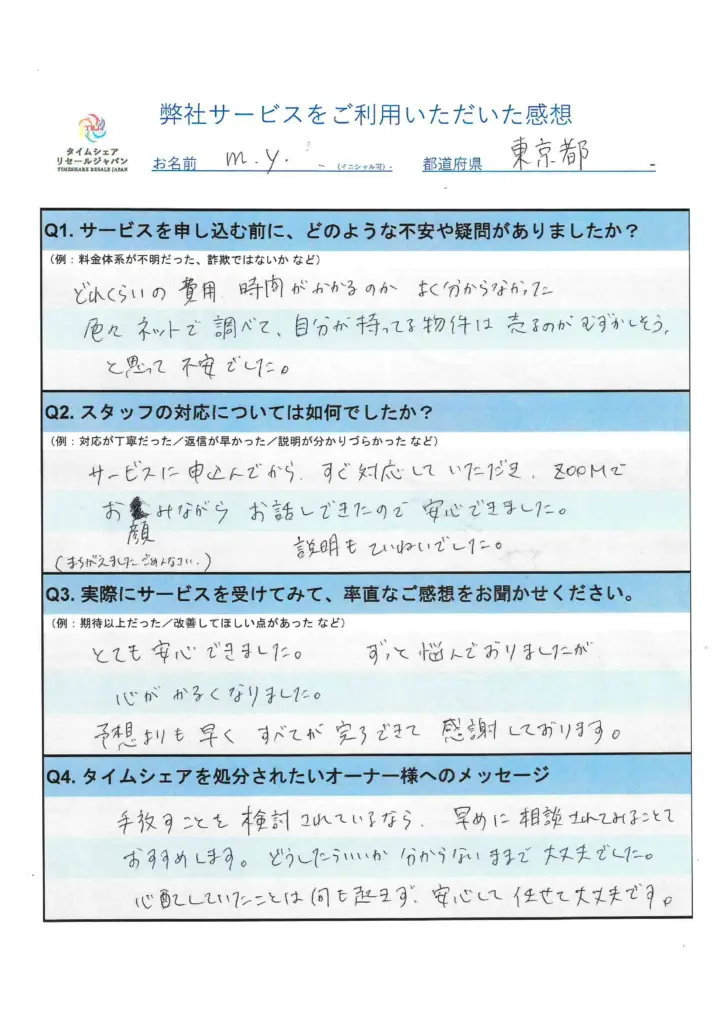 弊社サービスをご利用いただいた感想
TRJ
タイムシェア
リセールジャパン
TIMESHARE RESALE JAPAN
お名前 m.y. - (イニシャル可)- 都道府県 東京都 -
Q1. サービスを申し込む前に、どのような不安や疑問がありましたか？
（例：料金体系が不明だった、詐欺ではないか など）
どれくらいの 費用、時間がかかるのか よく分からなかった
色々 ネットで 調べて、自分が持ってる物件は 売るのがむずかしそう、
と思って 不安でした。
Q2. スタッフの対応については如何でしたか？
（例：対応が丁寧だった／返信が早かった／説明が分かりづらかった など）
サービスに申込んでから、すぐ対応していただき、ZOOMで
お みながら お話しできたので 安心できました。
顔
説明も ていねいでした。
(まちがえました ごめんなさい。)
Q3. 実際にサービスを受けてみて、率直なご感想をお聞かせください。
（例：期待以上だった／改善してほしい点があった など）
とても 安心できました。 ずっと悩んでおりましたが
心が かるくなりました。
予想よりも 早く すべてが 完了できて 感謝しております。
Q4. タイムシェアを処分されたいオーナー様へのメッセージ
手放すことを 検討されているなら、早めに 相談されてみることを
おすすめします。どうしたらいいか 分からないままで 大丈夫でした。
心配していたことは 何も起きず、安心して 任せて大丈夫です。